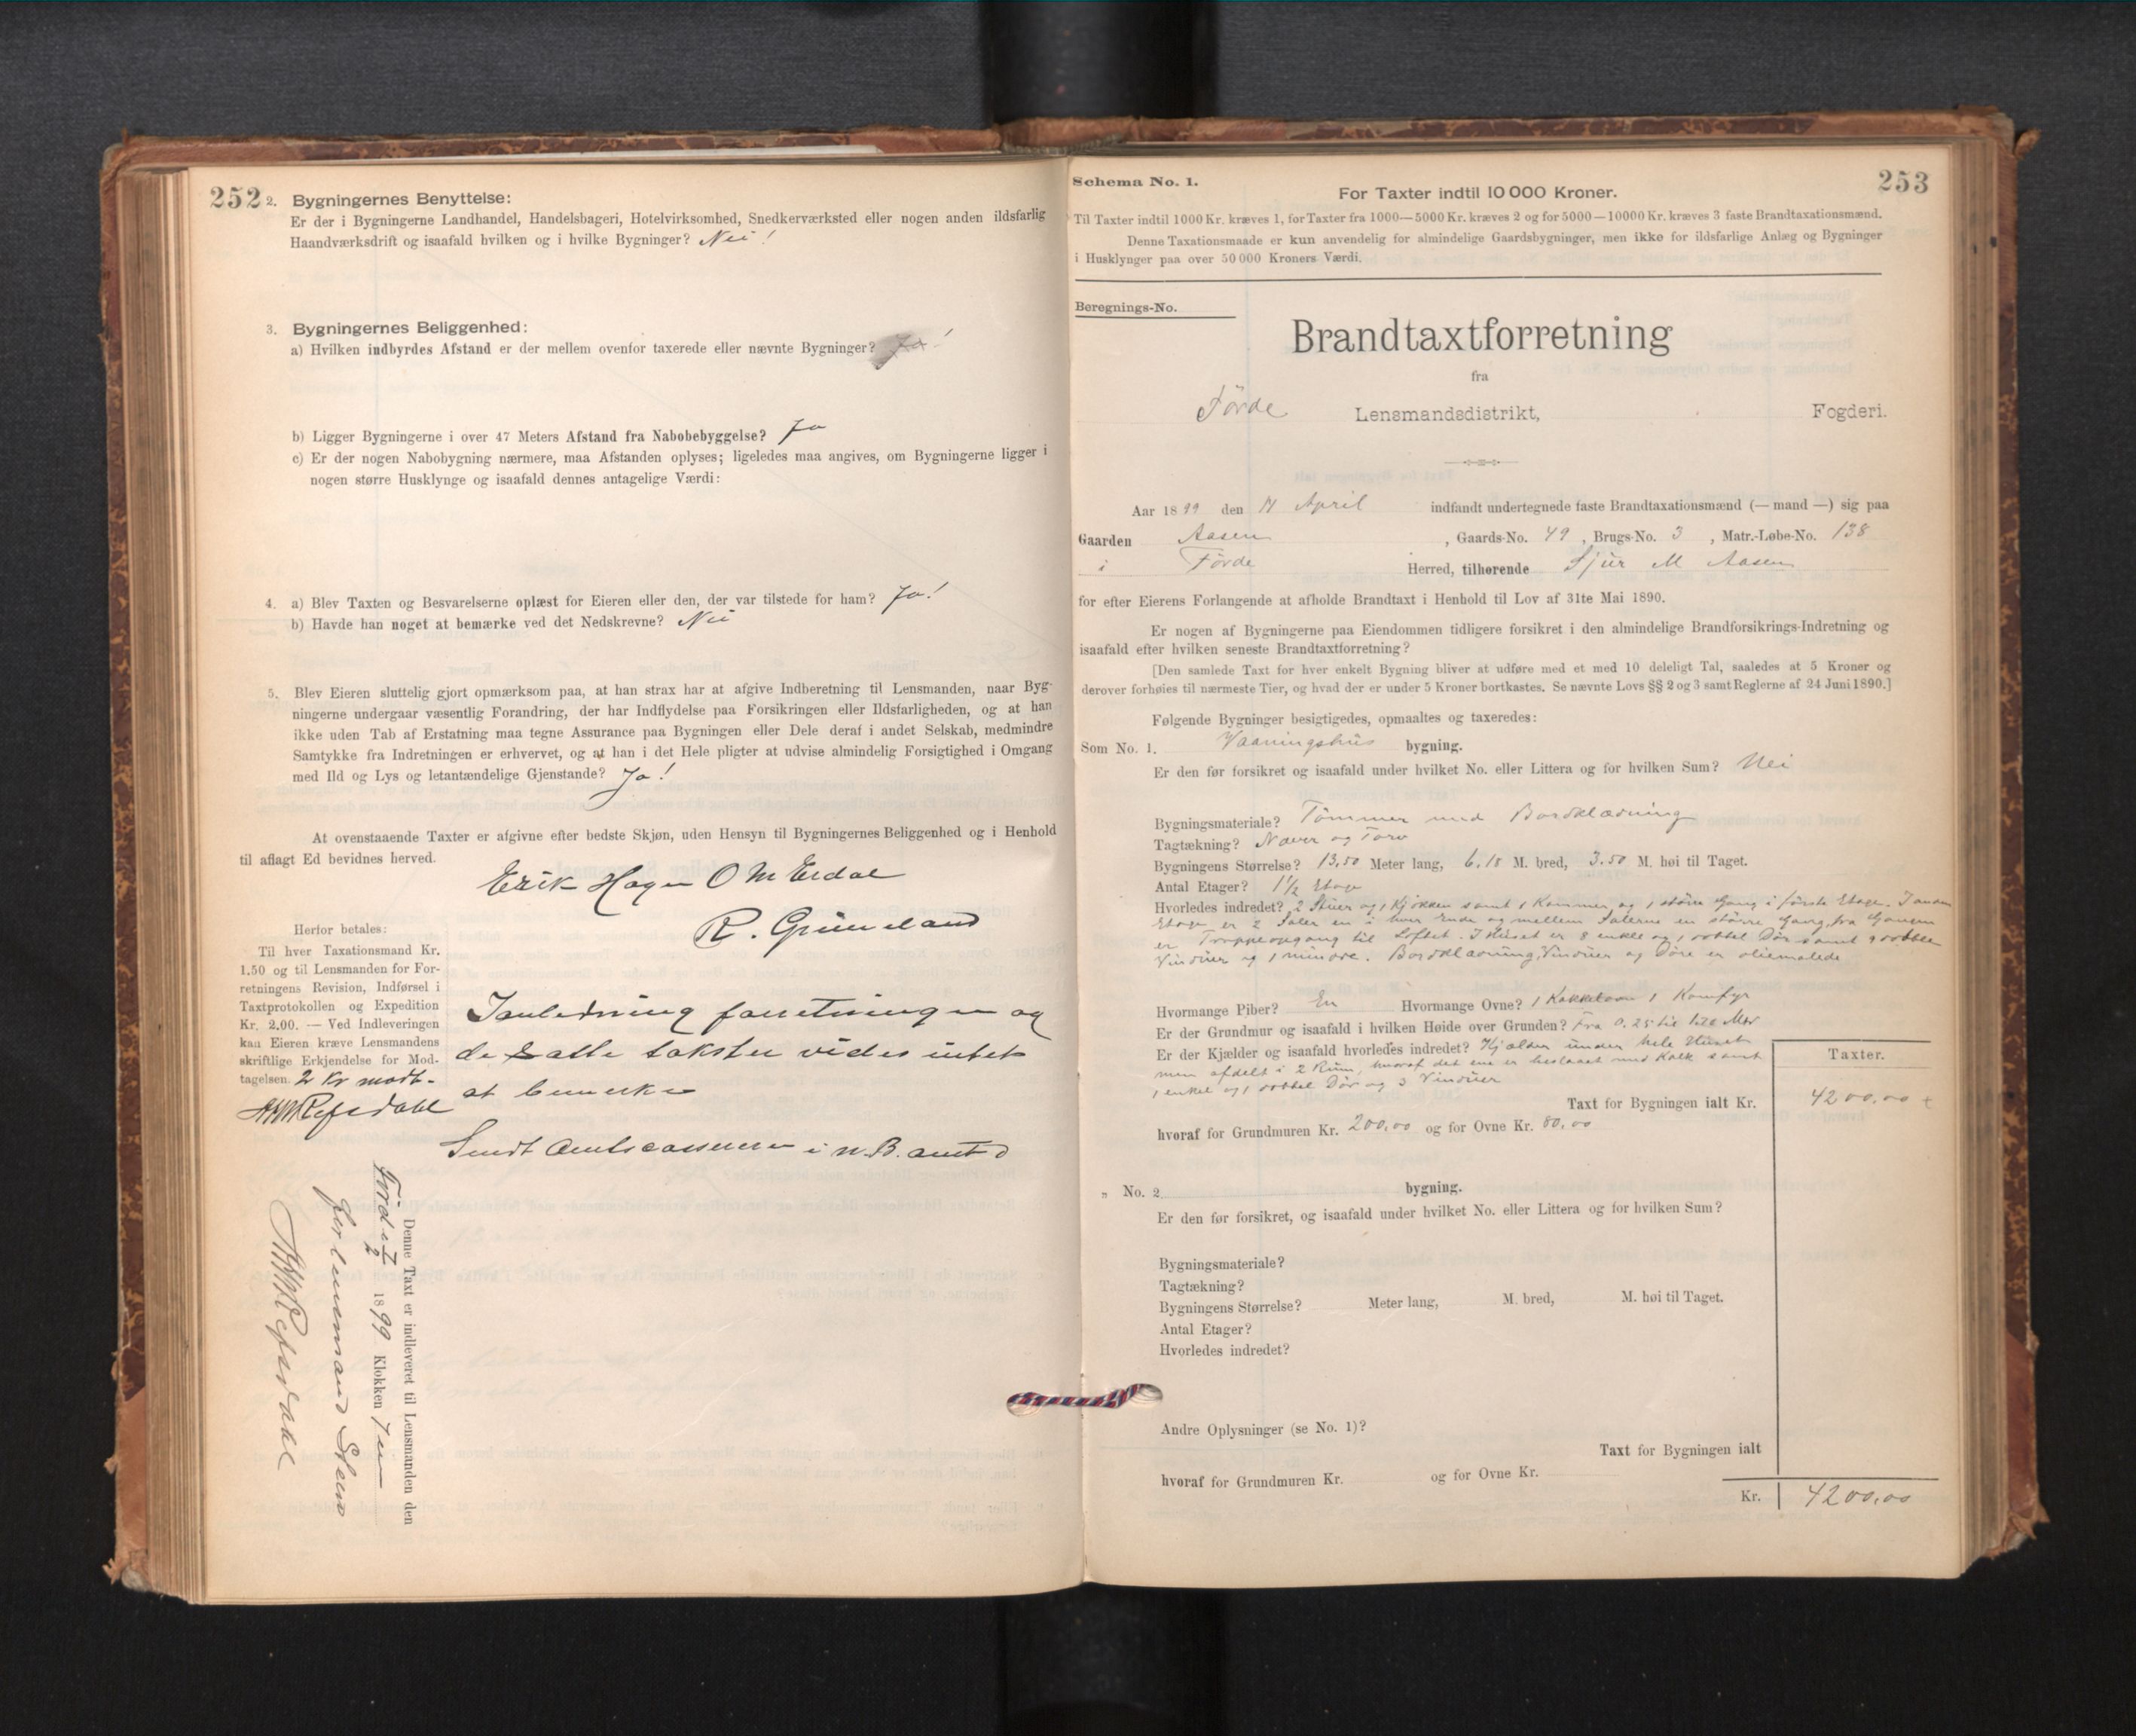 252
2. Bygningernes Benyttelse:
Er der i Bygningerne Landhandel, Handelsbageri, Hotelvirksomhed, Snedkerværksted eller nogen anden ildsfarlig
Haandværksdrift og isaafald hvilken og i hvilke Bygninger? Nei!
3. Bygningernes Beliggenhed:
a) Hvilken indbyrdes Afstand er der mellem ovenfor taxerede eller nævnte Bygninger? Ja!
b) Ligger Bygningerne i over 47 Meters Afstand fra Nabobebyggelse? Ja
c) Er der nogen Nabobygning nærmere, maa Afstanden oplyses; ligeledes maa angives, om Bygningerne ligger i
nogen større Husklynge og isaafald dennes antagelige Værdi:
4. a) Blev Taxten og Besvarelserne oplæst for Eieren eller den, der var tilstede for ham? Ja!
b) Havde han noget at bemærke ved det Nedskrevne? Nei
5. Blev Eieren sluttelig gjort opmærksom paa, at han strax har at afgive Indberetning til Lensmanden, naar Byg-
ningerne undergaar væsentlig Forandring, der har Indflydelse paa Forsikringen eller Ildsfarligheden, og at han
ikke uden Tab af Erstatning maa tegne Assurance paa Bygningen eller Dele deraf i andet Selskab, medmindre
Samtykke fra Indretningen er erhvervet, og at han i det Hele pligter at udvise almindelig Forsigtighed i Omgang
med Ild og Lys og letantændelige Gjenstande? Ja!
At ovenstaaende Taxter er afgivne efter bedste Skjøn, uden Hensyn til Bygningernes Beliggenhed og i Henhold
til aflagt Ed bevidnes herved.
Erik Hagen O M Erdal
R. Grimeland
Herfor betales:
Til hver Taxationsmand Kr.
1.50 og til Lensmanden for For-
retningens Revision, Indførsel i
Taxtprotokollen og Expedition
Kr. 2.00. — Ved Indleveringen
kan Eieren kræve Lensmandens
skriftlige Erkjendelse for Mod-
tagelsen. 2 Kr modt.
Refsdahl
I anledning forretningen og
de satte takster vides intet
at bemerke
Sendt Amtscasserer i N. B. amt
Denne Taxt er indleveret til Lensmanden den
1899 Klokken
for lensmand Steen
Refsdahl
Schema No. 1.
253
For Taxter indtil 10 000 Kroner.
Til Taxter indtil 1000 Kr. kræves 1, for Taxter fra 1000—5000 Kr. kræves 2 og for 5000—10000 Kr. kræves 3 faste Brandtaxationsmænd.
Denne Taxationsmaade er kun anvendelig for almindelige Gaardsbygninger, men ikke for ildsfarlige Anlæg og Bygninger
i Husklynger paa over 50 000 Kroners Værdi.
Beregnings-No.
Brandtaxtforretning
fra
Førde Lensmandsdistrikt, Fogderi.
Aar 1899 den April indfandt undertegnede faste Brandtaxationsmænd (— mand —) sig paa
Gaarden Aasen, Gaards-No. 49, Brugs-No. 3, Matr.-Løbe-No. 138
i Førde Herred, tilhørende Sjur M Aasen
for efter Eierens Forlangende at afholde Brandtaxt i Henhold til Lov af 31te Mai 1890.
Er nogen af Bygningerne paa Eiendommen tidligere forsikret i den almindelige Brandforsikrings-Indretning og
isaafald efter hvilken seneste Brandtaxtforretning?
[Den samlede Taxt for hver enkelt Bygning bliver at udføre med et med 10 deleligt Tal, saaledes at 5 Kroner og
derover forhøies til nærmeste Tier, og hvad der er under 5 Kroner bortkastes. Se nævnte Lovs §§ 2 og 3 samt Reglerne af 24 Juni 1890.]
Følgende Bygninger besigtigedes, opmaaltes og taxeredes:
Som No. 1. Vaaningshus bygning.
Er den før forsikret og isaafald under hvilket No. eller Littera og for hvilken Sum? Nei
Bygningsmateriale? Tømmer med Bordklædning
Tagtækning? Næver og Torv
Bygningens Størrelse? 13,50 Meter lang, 6.15 M. bred, 3.50 M. høi til Taget.
Antal Etager? 1½ Etage
Hvorledes indredet? 2 Stuer og 1 Kjøkken samt 1 Kammer og 1 større Gang i første Etage. I anden
Etage er 2 Saler en i hver Ende og mellem Salerne en større Gang, fra Gangen
er Trappeopgang til Loftet. I Huset er 8 enkle og 1 dobbel Dør samt 9 dobble
Vinduer og 1 mindre. Bordklædning, Vinduer og Døre er oliemalede
Hvormange Piber? En Hvormange Ovne? 1 Kakkelovn 1 Komfyr
Er der Grundmur og isaafald i hvilken Høide over Grunden? Fra 0.25 til 1.20 Mtr
Er der Kjælder og isaafald hvorledes indredet? Kjælder under hele Huset
men afdelt i 2 Rum, hvoraf det ene er beslaaet med Kalk samt
1 enkel og 1 dobbel Dør og 3 Vinduer
Taxter.
Taxt for Bygningen ialt Kr. 4200.00
hvoraf for Grundmuren Kr. 200,00 og for Ovne Kr. 80,00
„ No. 2 bygning.
Er den før forsikret, og isaafald under hvilket No. eller Littera og for hvilken Sum?
Bygningsmateriale?
Tagtækning?
Bygningens Størrelse? Meter lang, M. bred, M. høi til Taget.
Antal Etager?
Hvorledes indredet?
Andre Oplysninger (se No. 1)?
Taxt for Bygningen ialt
hvoraf for Grundmuren Kr. og for Ovne Kr.
Kr. 4200,00